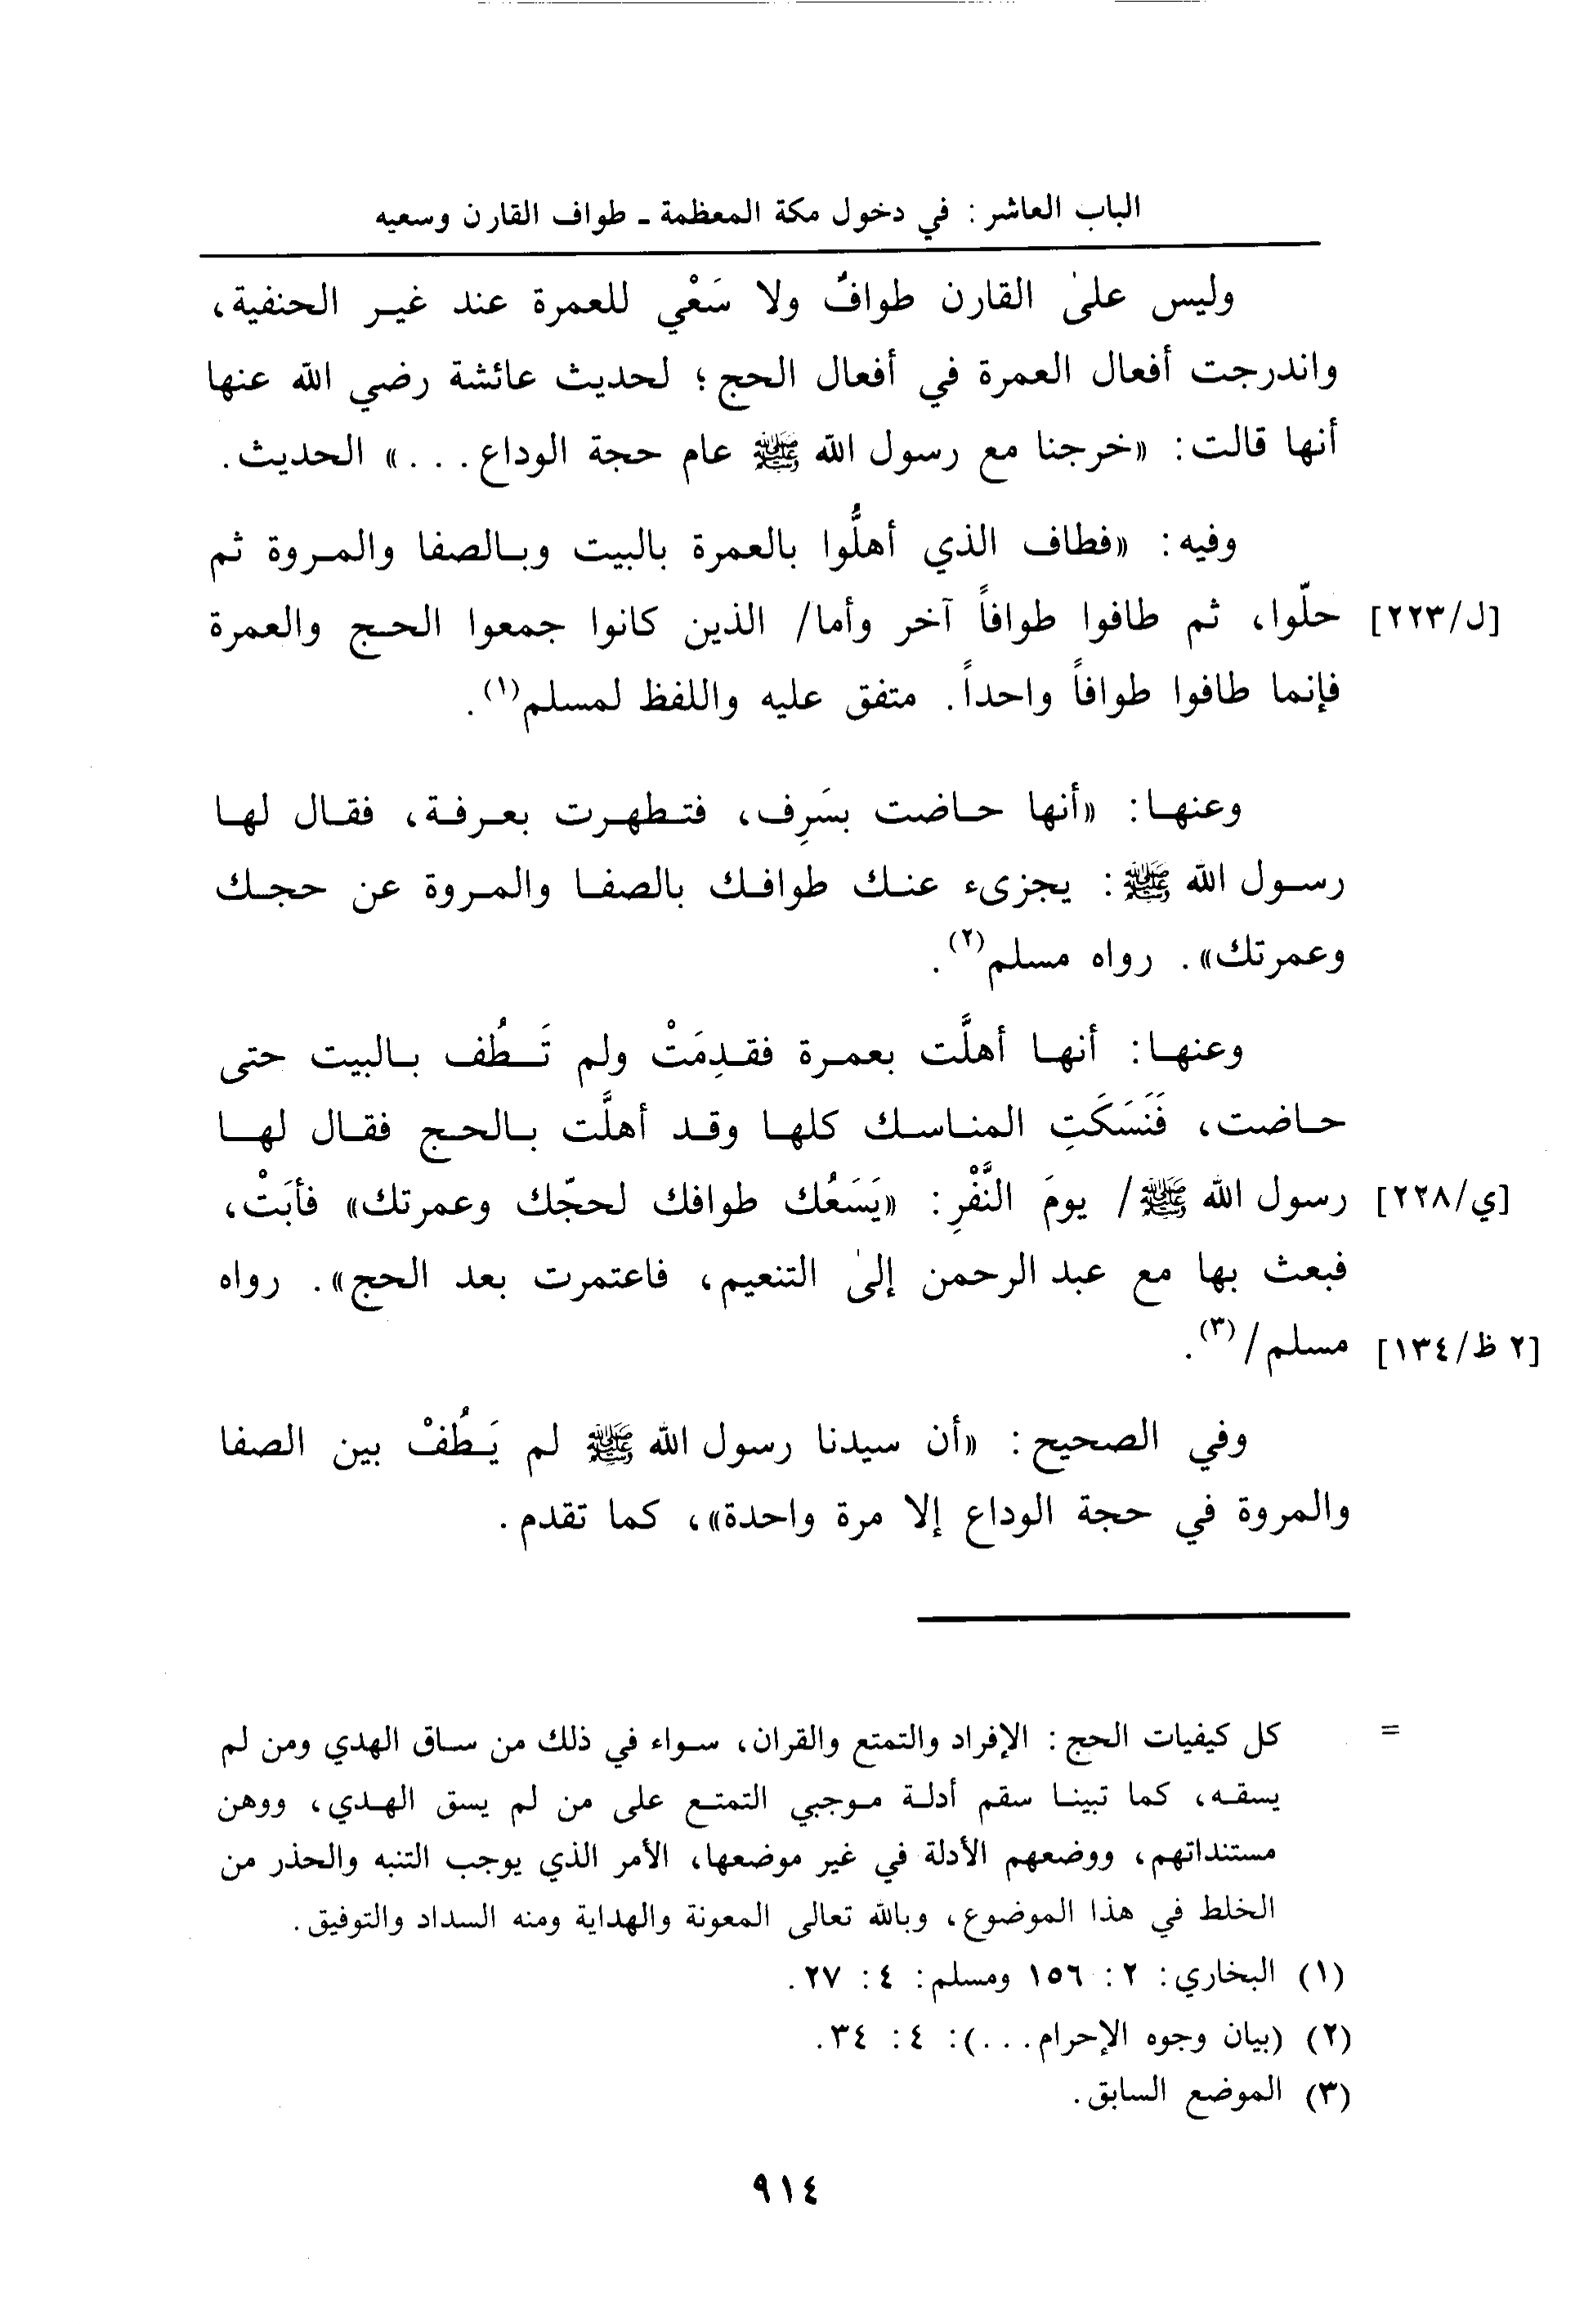 الباب العاشر: في دخول مكة المعظمة ـ طواف القارن وسعيه
وليس علىٰ القارن طوافٌ ولا سَعْي للعمرة عند غير الحنفية،
واندرجت أفعال العمرة في أفعال الحج؛ لحديث عائشة رضي الله عنها
أنها قالت: «خرجنا مع رسول الله ﷺ عام حجة الوداع...» الحديث.
وفيه: «فطاف الذي أهلُّوا بالعمرة بالبيت وبالصفا والمروة ثم
[ل/٢٢٣] حلّوا، ثم طافوا طوافاً آخر وأما/ الذين كانوا جمعوا الحج والعمرة
فإنما طافوا طوافاً واحداً. متفق عليه واللفظ لمسلم(١).
وعنها: «أنها حاضت بسَرِف، فتطهرت بعرفة، فقال لها
رسول الله ﷺ: يجزىء عنك طوافك بالصفا والمروة عن حجك
وعمرتك». رواه مسلم(٢).
وعنها: أنها أهلَّت بعمرة فقدِمَتْ ولم تَطُف بالبيت حتى
حاضت، فَنَسَكَتِ المناسك كلها وقد أهلَّت بالحج فقال لها
[ي/٢٢٨] رسول الله ﷺ/ يومَ النَّفْرِ: «يَسَعُك طوافك لحجّك وعمرتك» فأبَتْ،
فبعث بها مع عبد الرحمن إلىٰ التنعيم، فاعتمرت بعد الحج». رواه
[٢ ظ/١٣٤] مسلم/(٣).
وفي الصحيح: «أن سيدنا رسول الله ﷺ لم يَطُفْ بين الصفا
والمروة في حجة الوداع إلا مرة واحدة»، كما تقدم.
= كل كيفيات الحج: الإفراد والتمتع والقران، سواء في ذلك من ساق الهدي ومن لم
يسقه، كما تبينا سقم أدلة موجبي التمتع على من لم يسق الهدي، ووهن
مستنداتهم، ووضعهم الأدلة في غير موضعها، الأمر الذي يوجب التنبه والحذر من
الخلط في هذا الموضوع، وبالله تعالى المعونة والهداية ومنه السداد والتوفيق.
(١) البخاري: ٢: ١٥٦ ومسلم: ٤: ٢٧.
(٢) (بيان وجوه الإحرام...): ٤: ٣٤.
(٣) الموضع السابق.
٩١٤